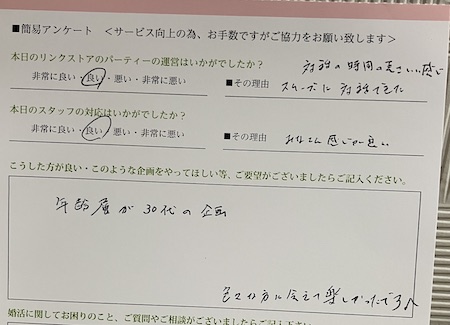 ■簡易アンケート ＜サービス向上の為、お手数ですがご協力をお願い致します＞
本日のリンクストアのパーティーの運営はいかがでしたか？
対談の時間は長さいい感じ
非常に良い・良い・悪い・非常に悪い ■その理由 スムーズに対談できた
本日のスタッフの対応はいかがでしたか？
非常に良い・良い・悪い・非常に悪い ■その理由 みなさん感じが良い
こうした方が良い・このような企画をやってほしい等、ご要望がございましたらご記入ください。
年齢層が30代の企画
色々な方に会えて楽しかったです
婚活に関してお困りのこと、ご質問やご相談がございましたらご記入下さい